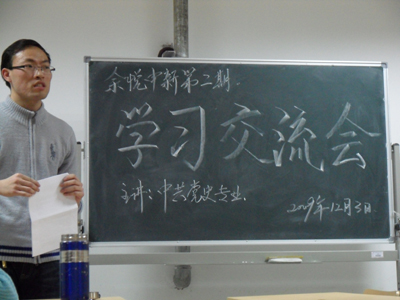 余悦中新第二期
学习交流会
主讲:中共党史专业.
2009年12月3日.